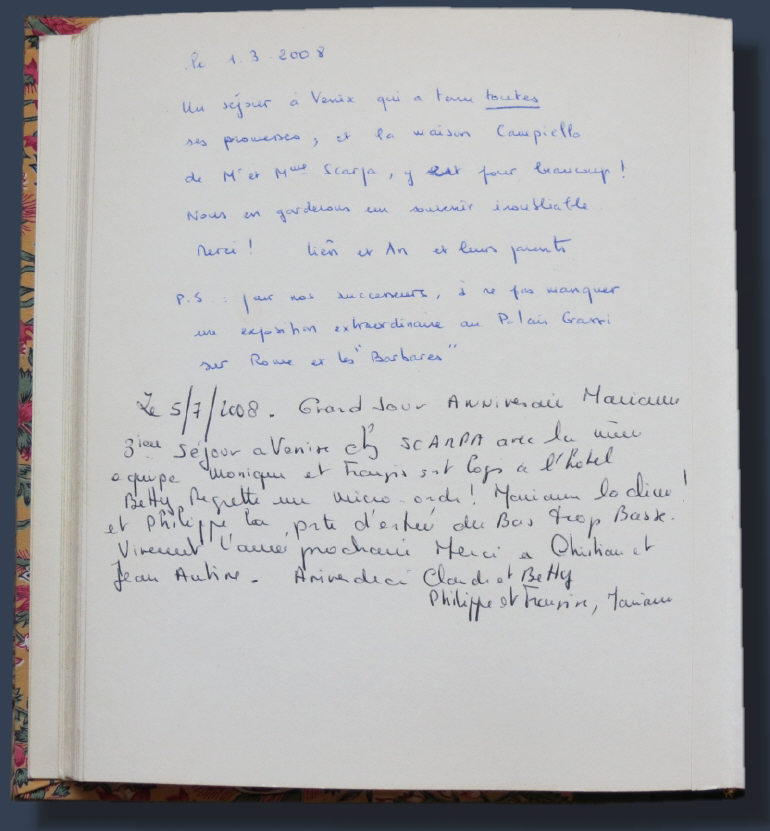 Le 1.3.2008
Un séjour à Venise qui a tenu toutes
ses promesses, et la maison Campiello
de Mr et Mme Scarpa, y est pour beaucoup !
Nous en garderons un souvenir inoubliable
Merci ! Liên et An et leurs parents
P.S : pour nos successeurs, à ne pas manquer
une exposition extraordinaire au Palais Grassi
sur Rome et les "Barbares"
Le 5/7/2008. Grand Jour Anniversaire Marianne
3ieme séjour a Venise chz SCARPA avec la même
equipe Monique et François st logs à l'hotel
Betty Regrette un micro-onde ! Marianne la clim !
et Philippe la pte d'entrée du Bas trop Basse.
Vivement l'année prochaine Merci a Christian et
Jean Antine. Ariverdeci Claude et Betty
Philippe et Francine, Marianne